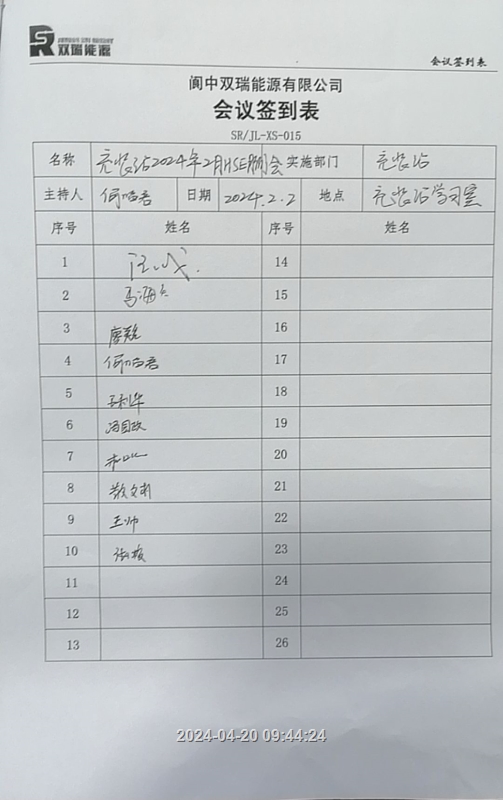 双瑞能源
会议签到表
阆中双瑞能源有限公司
会议签到表
SR/JL-XS-015
名称 充装站2024年2月HSE例会 实施部门 充装站
主持人 何 日期 2024.2.2 地点 充装站学习室
序号 姓名 序号 姓名
1 14
2 马海 15
3 廖 16
4 何 17
5 王利华 18
6 冯国政 19
7 20
8 敬文 21
9 王帅 22
10 张 23
11 24
12 25
13 26
2024-04-20 09:44:24